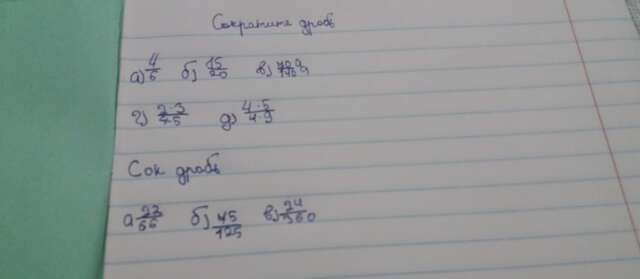 Сократите дробь
а) 4/6 б) 15/20 в)
г) 2·3/7·5 д) 4·5/4·9
Сок дробь
а 22/66 б) 45/125 в) 24/360